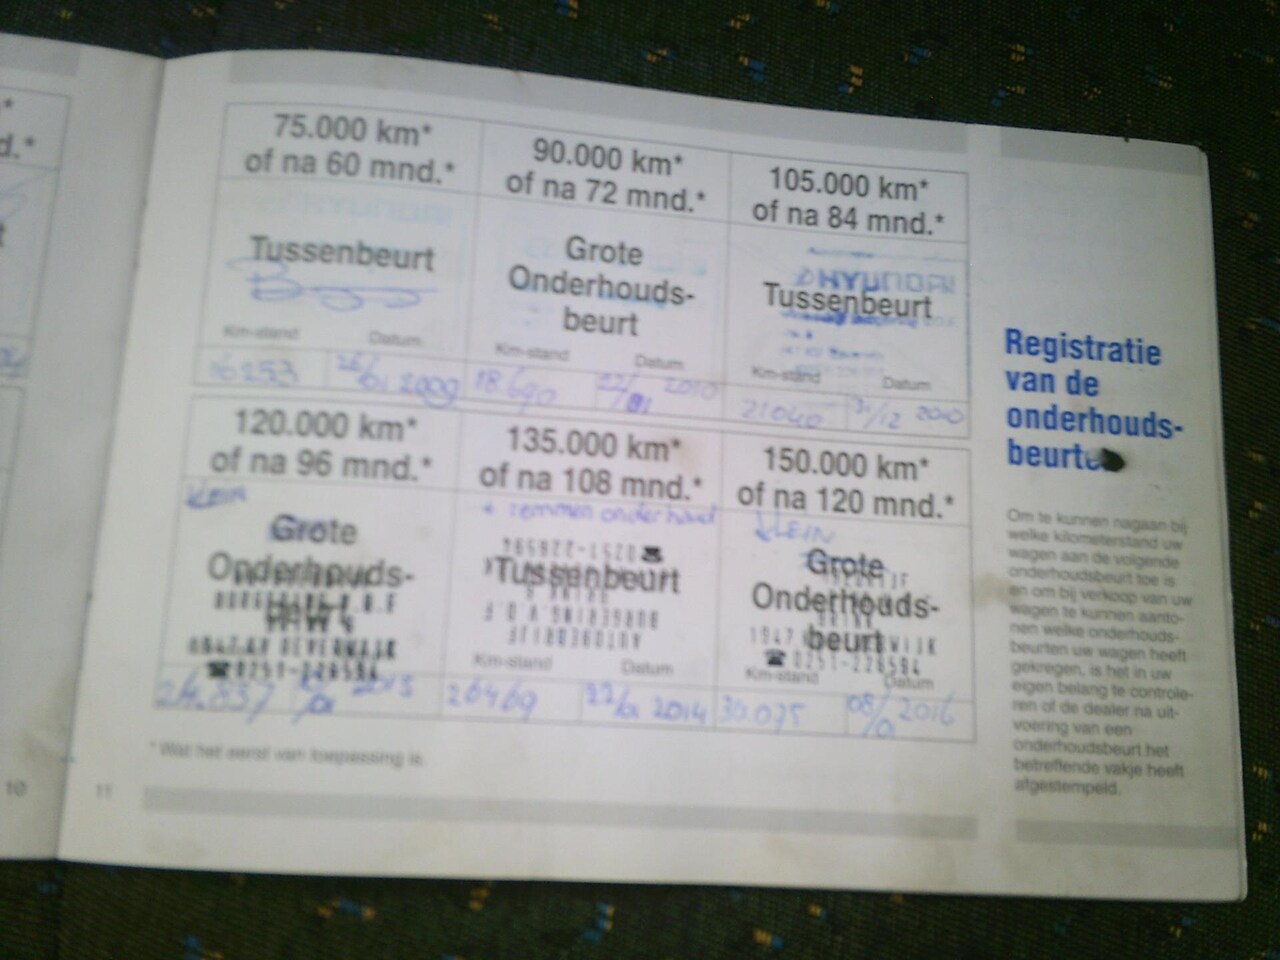 75.000 km*
of na 60 mnd.*
Tussenbeurt
Km-stand Datum
16253 2009
90.000 km*
of na 72 mnd.*
Grote
Onderhouds-
beurt
Km-stand Datum
18690 2010
105.000 km*
of na 84 mnd.*
HYUNDAI
Tussenbeurt
Km-stand Datum
21040 31/12 2010
120.000 km*
of na 96 mnd.*
KLEIN
Grote
Onderhouds-
beurt
☎0251-226594
24.837 2013
135.000 km*
of na 108 mnd.*
+ remmen onderhoud
Tussenbeurt
Km-stand Datum
26469 2014
150.000 km*
of na 120 mnd.*
KLEIN
Grote
Onderhouds-
beurt
☎0251-226594
Km-stand Datum
30.075 2016
* Wat het eerst van toepassing is.
10
11
Registratie
van de
onderhouds-
beurte
Om te kunnen nagaan bij
welke kilometerstand uw
wagen aan de volgende
onderhoudsbeurt toe is
en om bij verkoop van uw
wagen te kunnen aanto-
nen welke onderhouds-
beurten uw wagen heeft
gekregen, is het in uw
eigen belang te controle-
ren of de dealer na uit-
voering van een
onderhoudsbeurt het
betreffende vakje heeft
afgestempeld.